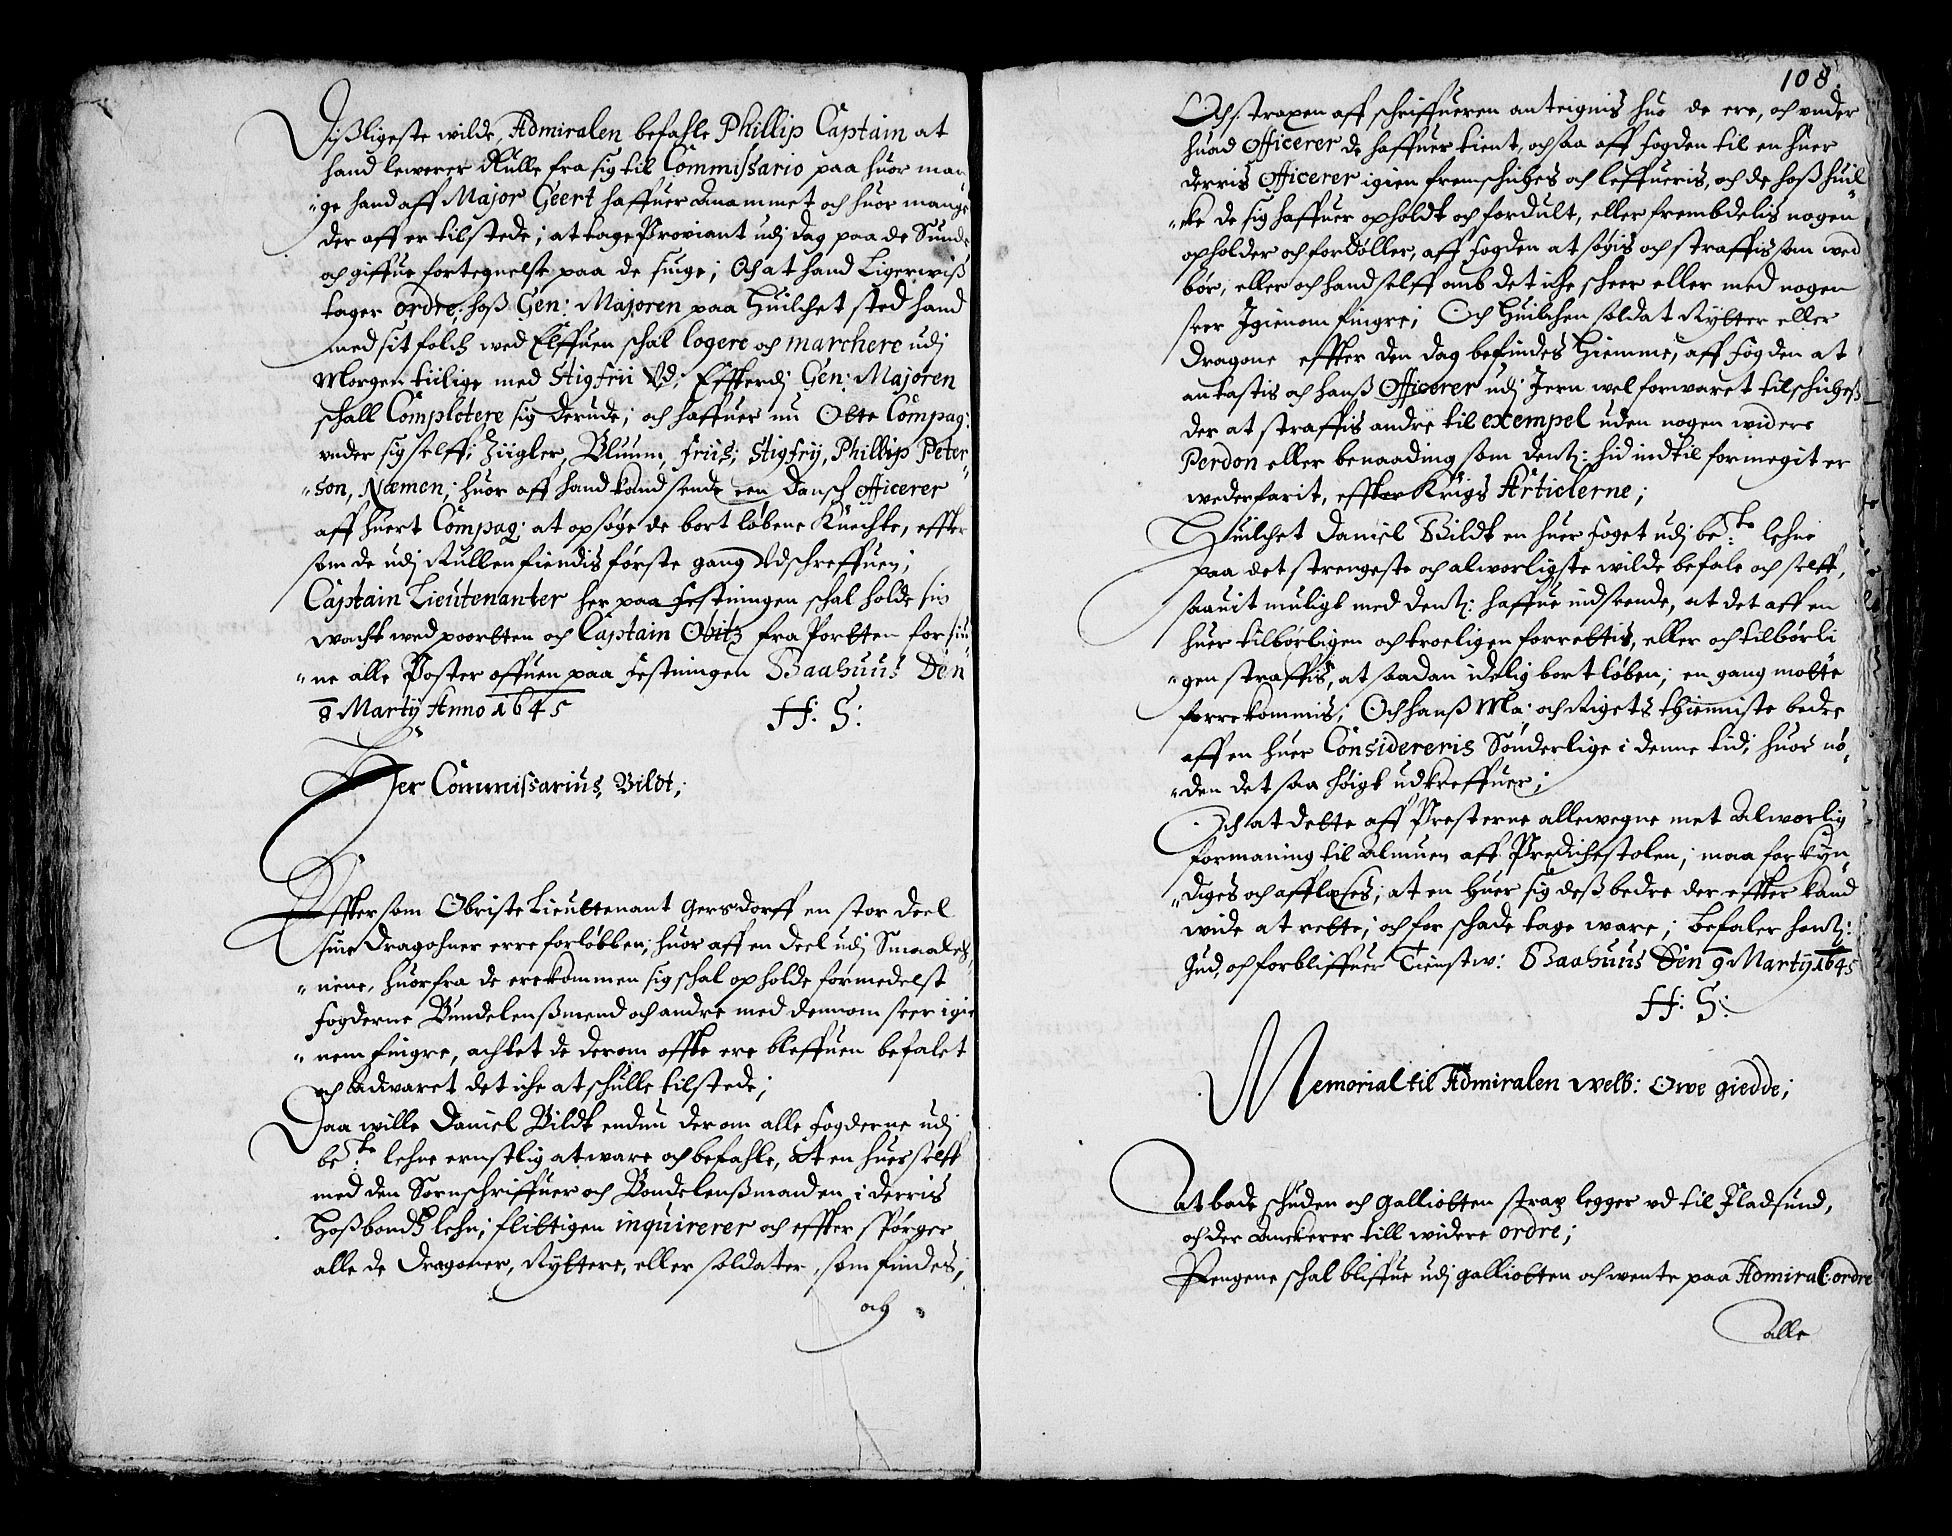 Dißligeste wilde, Admiralen befahle Phillip Captain at
hand lewerer Rulle fra sig til Commissario paa huor man
"ge hand aff Major Geert haffuer Anammet och huor mange
der aff er tilstede; at tage Proviant udj dag paa de Sunde
och giffue fortegnelse paa de siuge; Och at hand Ligerwiß
tager ordre; hoß Gen: Majoren paa Huilchet sted hand
med sit folch wed Elffuen schal logere och marchere udj
Morgen tiilige med Stigfrii Vd; Effterdj Gen: Majoren
schall Complotere sig derude; och haffuer nu Otte Compag:
vnder sig selff; Ziigler, Bluum, friis; Stigfrÿ, Phillip Peter"
"son, Næmen; huor aff hand kand sende een Dansch officerer
aff huert Compag: at opsøge de bort løbene Knechte, effter
som de udj Rullen fiendis første gang Udschreffuen;
Captain Lieutenanter her paa Festningen schal holde sin
wacht wed poortten och Captain Obitz fra Portten for sin"
"ne alle Poster offuen paa Festningen Baahuus Den
8 Martÿ Anno 1645 H: S:
Her Commissarius, Bildt;
Effter som Obriste Lieuttenant Gersdorff en stor deel
sine Dragohner erre forløbben; huor aff en deel udj Smaaleh,
"nene, huorfra de ere kommen sig schal opholde formedelst
fogderne Bundelenßmend och andre med dennom seer igie
"nem fingre, achtet de derom offte ere bleffuen befalet
och adwaret det iche at schulle tilstede;
Daa wille Daniel Bildt endnu derom alle fogderne udj
be:te lehne ernstlig at ware och befahle, At en huer selff
med den Sornschriffuer och Bondelenßmanden i derris
Hoßbondß lehn; flittigen inquirerer och effter spørger
alle de Dragoner, Ryttere, eller soldater, som findes;
och
108.
Och straxen aff schriffueren anteignis huo de ere, och vnder
huad officerer de haffuer tient, och saa aff fogden til en huer
derris officerer igien fremschickes och leffueris, och de hoß huil"
"cke de sig haffuer opholdt och fordult, eller frembdelis nogen
opholder och fordøller, aff fogden at søgis och straffis som wed
bør, eller och hand selff omb det iche scheer eller med nogen
seer Igienom fingre; Och Huilchen soldat Rytter eller
Dragone effter den dag befindes Hiemme, aff fogden at
antastis och hanß officerer udj Jern wel forwaret tilschickeß
der at straffis andre til exempel uden nogen widere
Perdon eller benaading som dend: hid indtil formegit er
wederfarit, effter Krigs Articlerne;
Huilchet Daniel Bildt en huer foget udj be:te lehne
paa det strengeste och alworligste wilde befale och selff,
saauit muligt med dend: haffue indseende, at det aff en
huer tilbørligen och troeligen forrettis, eller och tilbørli
"gen straffis, at saadan idelig bort løben; en gang motte
forrekommis; Och hanß Ma: och Rigets thienniste bedre
aff en huer Considereris Sønderlige i denne tid; huor nø,
"den det saa høigt udkreffuer;
Och at dette aff Presterne allewegne met Alworlig
formaning til Almuen aff Predichestolen; maa forkyn,
"diges och afflæses; at en Huer sig deß bedre der effter kand
wide at rette; och for schade tage ware; befaler hend:
Gud, och forbliffuer Tienstw: Baahuus Den 9 Martÿ 1645
H: S:
Memorial til Admiralen Welb: Owe giedde;
At bade schuden och Galliotten strax legger vd til Fladsund,
och der Anckerer till widere ordre;
Pengene schal bliffue udj Galliotten och wente paa Admiral: ordre
Alle